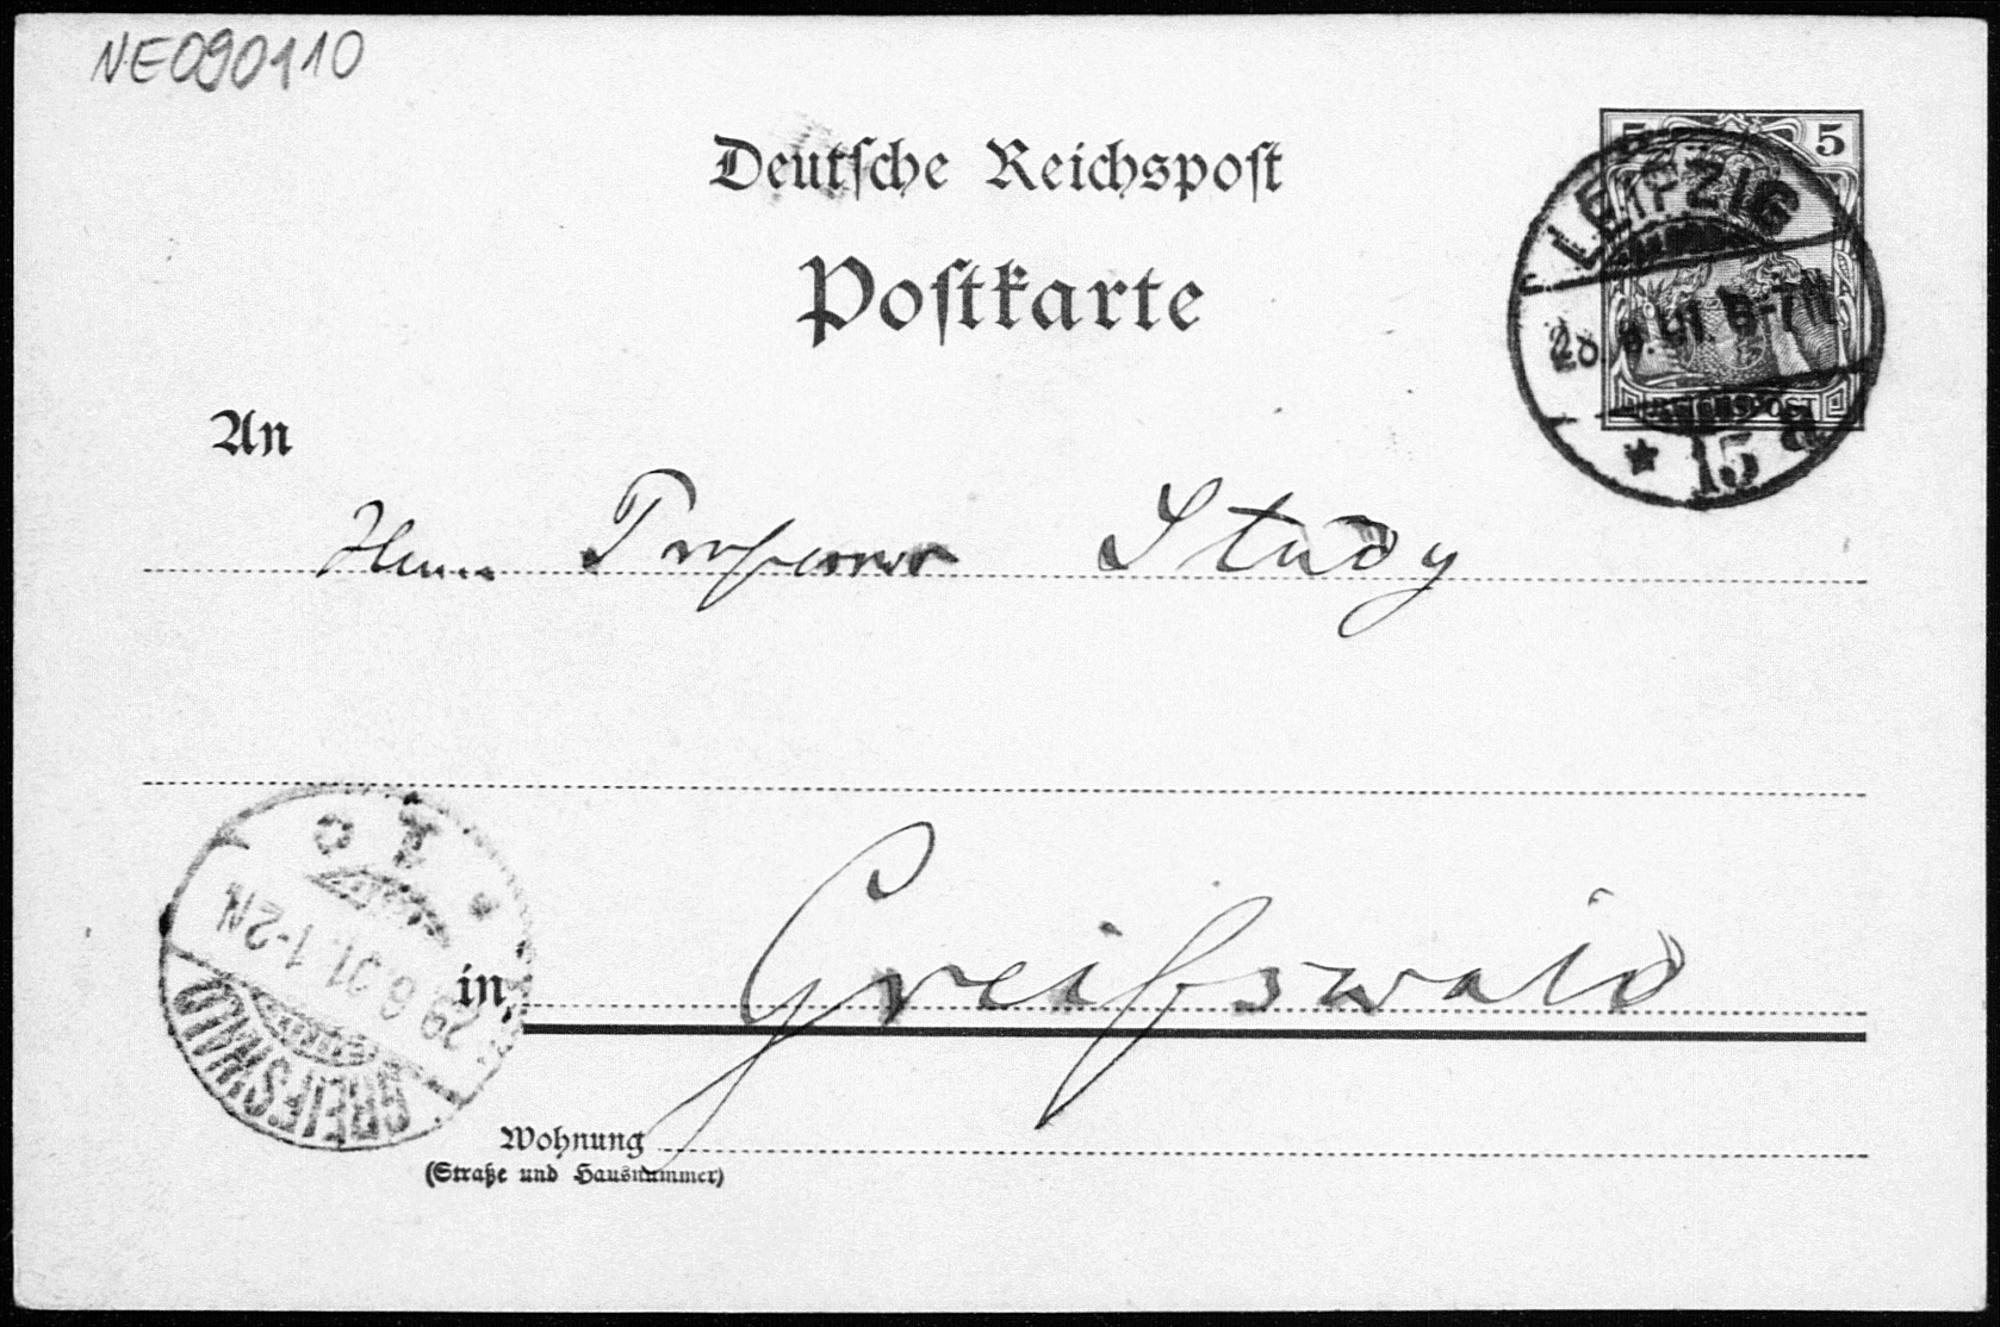 NE090110
Deutsche Reichspost
Postkarte
5 5
REICHSPOST
LEIPZIG
6-7 N
* 15 a
An
Herrn Professor Study
in Greifswald
Wohnung
(Straße und Hausnummer)
GREIFSWALD
29.6.01. 1-2N
* 1 c